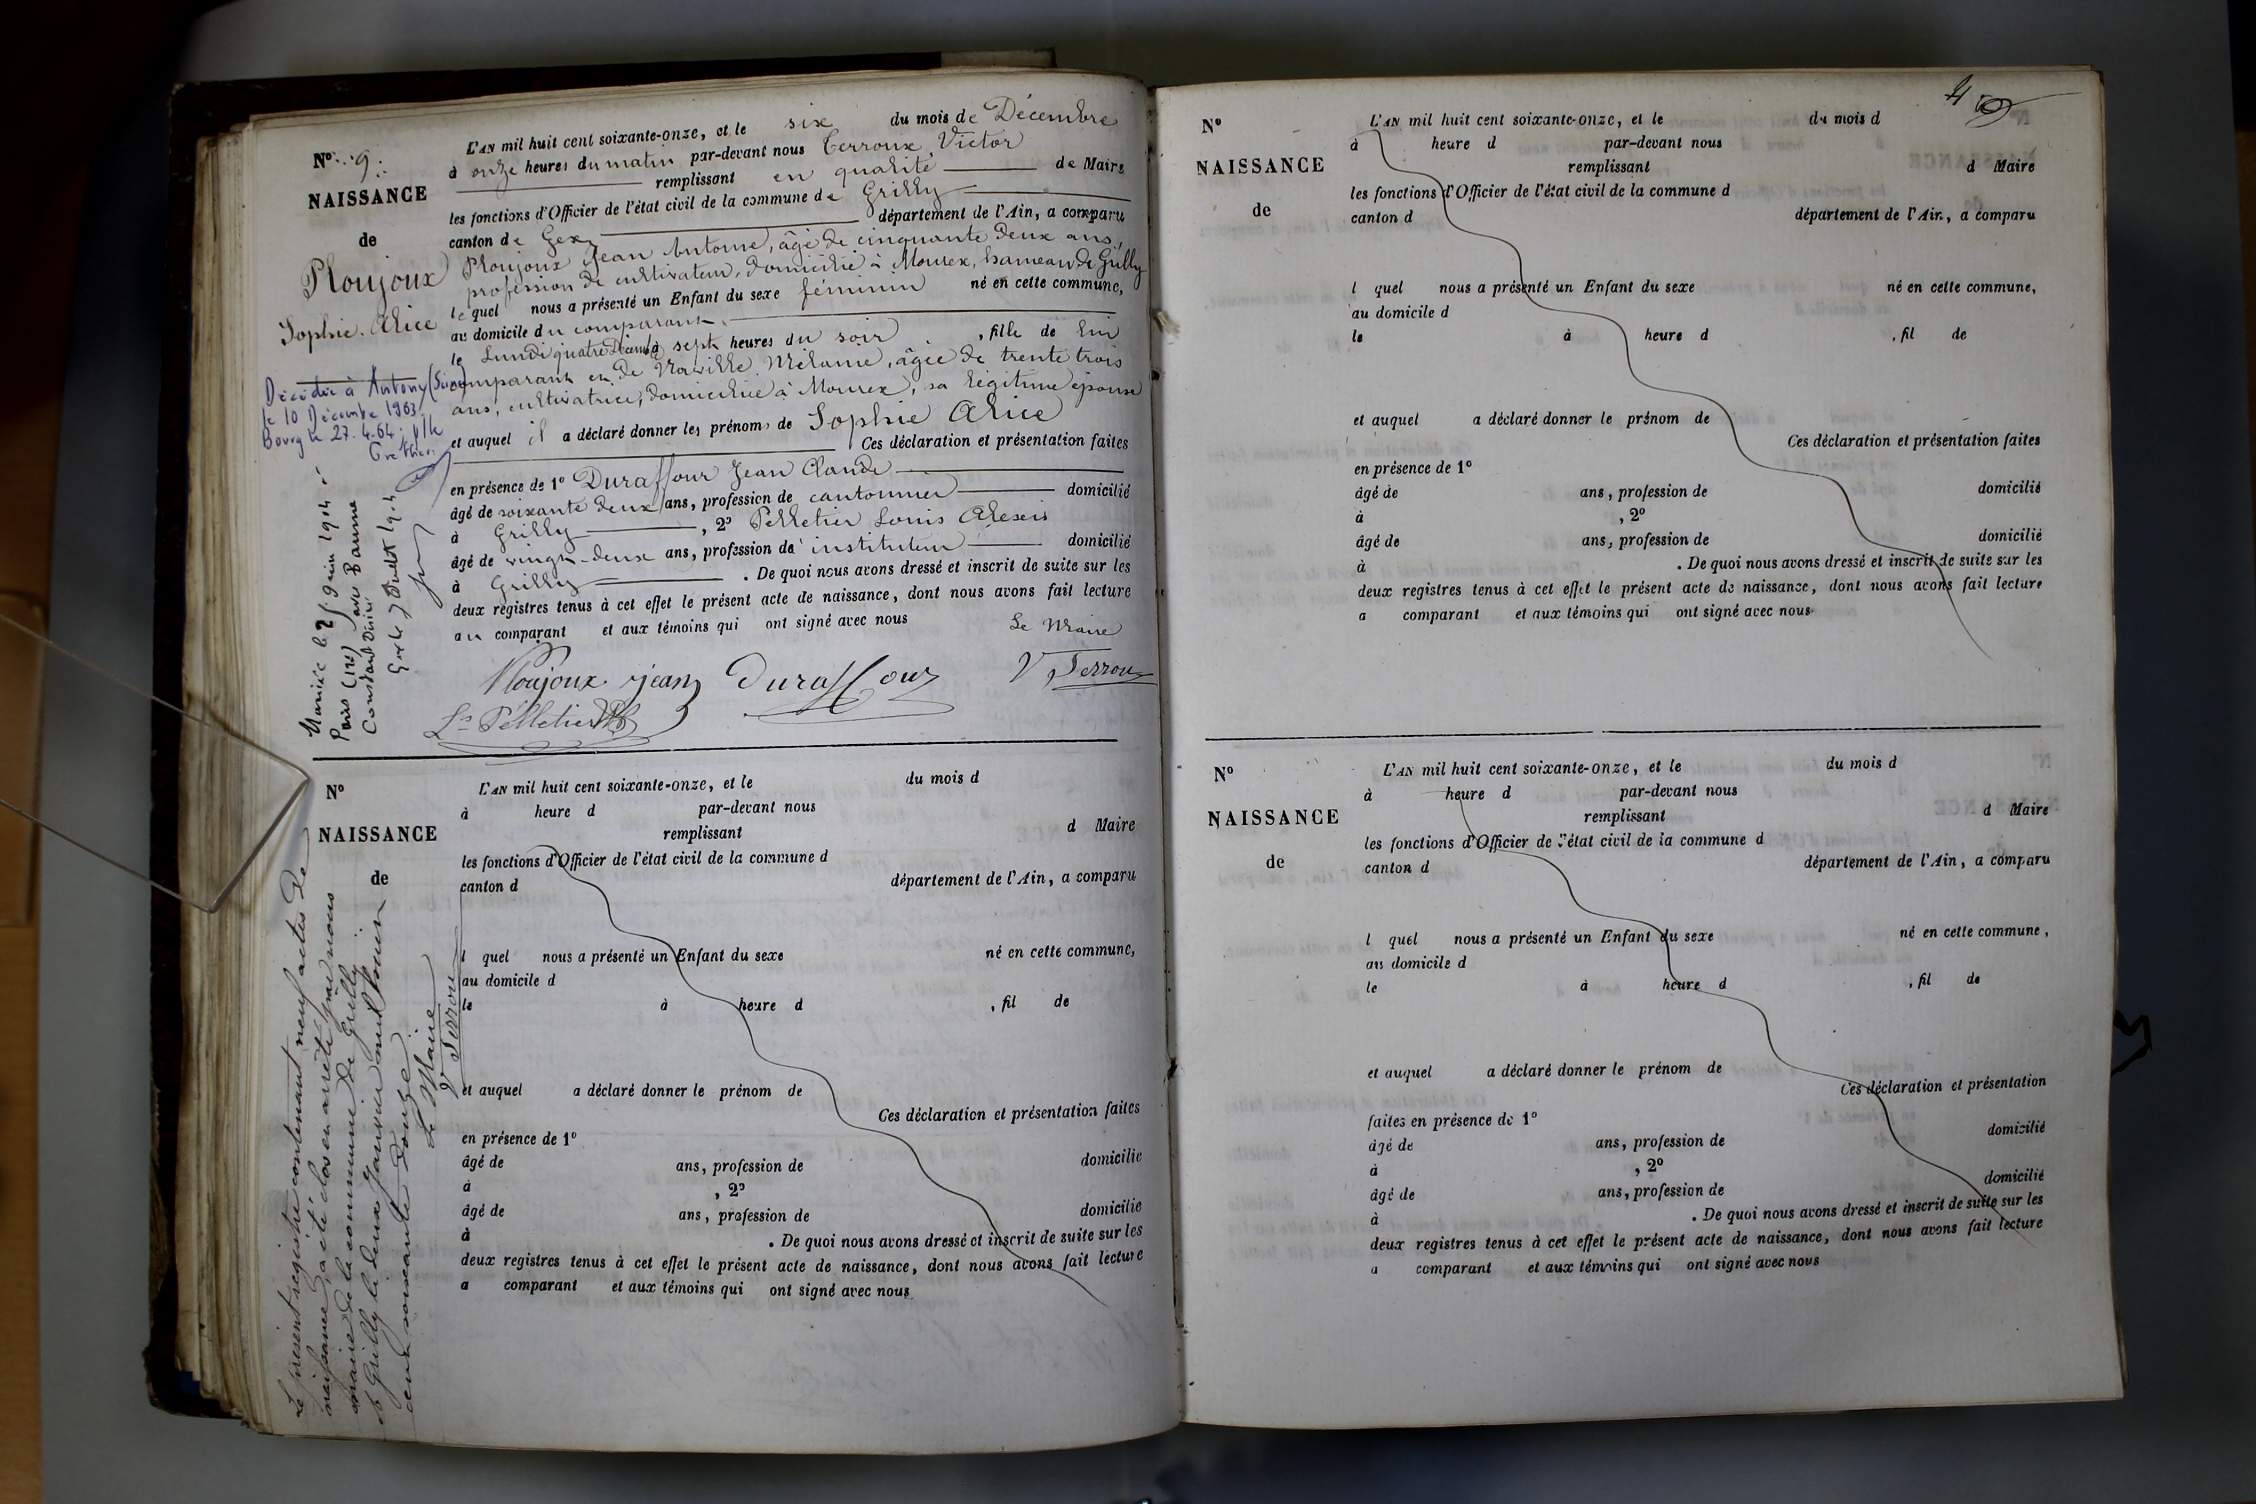 L'AN mil huit cent soixante-onze, et le six du mois de Décembre
à onze heures du matin par-devant nous Terroux Victor
remplissant en qualité de Maire
les fonctions d'Officier de l'état civil de la commune de Grilly
canton de Gex département de l'Ain, a comparu
Ploujoux Jean Antoine, âgé de cinquante deux ans,
profession de cultivateur, domicilié à Mourex, hameau de Grilly
lequel nous a présenté un Enfant du sexe féminin né en cette commune,
au domicile du comparant,
le Lundi quatre à sept heures du soir, fille de lui
comparant et de Mélanie, âgée de trente trois
ans, cultivatrice, domiciliée à Mourex, sa légitime épouse
et auquel il a déclaré donner les prénoms de Sophie Alice
Ces déclaration et présentation faites
en présence de 1º Duraffour Jean Claude
âgé de soixante deux ans, profession de cantonnier domicilié
à Grilly, 2º Pelletier Louis Alexis
âgé de vingt-deux ans, profession de instituteur domicilié
à Grilly. De quoi nous avons dressé et inscrit de suite sur les
deux registres tenus à cet effet le présent acte de naissance, dont nous avons fait lecture
au comparant et aux témoins qui ont signé avec nous
Le Maire
Ploujoux jean Duraffour V Terroux
Ls Pelletier
Nº 9
NAISSANCE
de
Ploujoux
Sophie Alice
Décédée à Antony (Seine)
le 10 Décembre 1963
Bourg le 27.4.64
Mariée le juin 1914 à
Paris (17e) avec Bonne
Constant
Gex le 7 Juillet 1914
Nº
NAISSANCE
de
L'AN mil huit cent soixante-onze, et le du mois d
à heure d par-devant nous
remplissant d Maire
les fonctions d'Officier de l'état civil de la commune d
canton d département de l'Ain, a comparu
l quel nous a présenté un Enfant du sexe né en cette commune,
au domicile d
le à heure d , fil de
et auquel a déclaré donner le prénom de
Ces déclaration et présentation faites
en présence de 1º
âgé de ans, profession de domicilié
à , 2º
âgé de ans, profession de domicilié
à . De quoi nous avons dressé et inscrit de suite sur les
deux registres tenus à cet effet le présent acte de naissance, dont nous avons fait lecture
a comparant et aux témoins qui ont signé avec nous
Le présent registre contenant neuf actes de
naissance, a été clos en arrêté par nous
maire de la commune de Grilly
à Grilly le deux janvier mil huit
cent soixante douze.
Le Maire
V Terroux
Nº
NAISSANCE
de
L'AN mil huit cent soixante-onze, et le du mois d
à heure d par-devant nous
remplissant d Maire
les fonctions d'Officier de l'état civil de la commune d
canton d département de l'Ain, a comparu
l quel nous a présenté un Enfant du sexe né en cette commune,
au domicile d
le à heure d , fil de
et auquel a déclaré donner le prénom de
Ces déclaration et présentation faites
en présence de 1º
âgé de ans, profession de domicilié
à , 2º
âgé de ans, profession de domicilié
à . De quoi nous avons dressé et inscrit de suite sur les
deux registres tenus à cet effet le présent acte de naissance, dont nous avons fait lecture
a comparant et aux témoins qui ont signé avec nous
Nº
NAISSANCE
de
L'AN mil huit cent soixante-onze, et le du mois d
à heure d par-devant nous
remplissant d Maire
les fonctions d'Officier de l'état civil de la commune d
canton d département de l'Ain, a comparu
l quel nous a présenté un Enfant du sexe né en cette commune,
au domicile d
le à heure d , fil de
et auquel a déclaré donner le prénom de
Ces déclaration et présentation
faites en présence de 1º
âgé de ans, profession de domicilié
à , 2º
âgé de ans, profession de domicilié
à . De quoi nous avons dressé et inscrit de suite sur les
deux registres tenus à cet effet le présent acte de naissance, dont nous avons fait lecture
a comparant et aux témoins qui ont signé avec nous